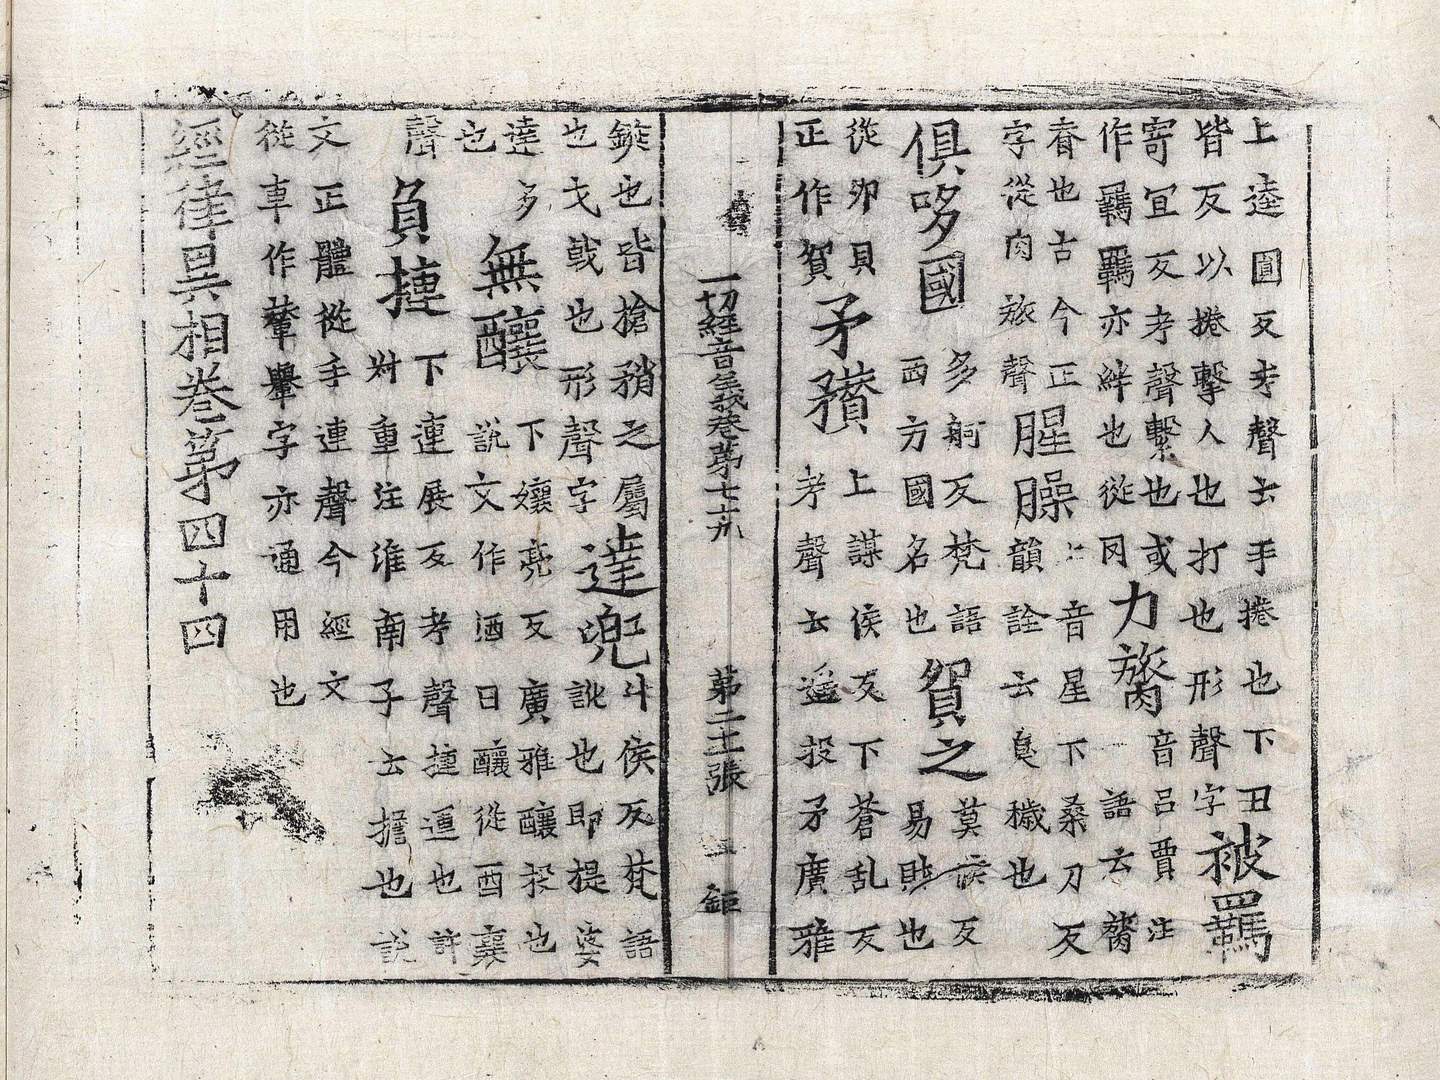 上逵圓反考聲云手捲也下丑
皆反以捲擊人也打也形聲字
被羈
寄宜反考聲繫也或
作羈羈亦絆也從罔
力膂
音呂賈注
語云膂
脊也古今正
字從肉旅聲
腥臊
上音星下桑刀反
韻詮云臭穢也
俱哆國
多舸反梵語
西方國名也
貿之
莫侯反
易財也
從卯貝
正作貿
矛䂎
上謀侯反下蒼乱反
考聲云遥投矛廣雅
一切經音義卷第七十九 第二十張 鉅
鏦也皆搶矟之屬
也戈戟也形聲字
達兜
斗侯反梵語
訛也即提婆
達多
也
無釀
下孃亮反廣雅釀投也
說文作酒曰釀從酉襄
聲
負揵
下連展反考聲揵運也許
対重注淮南子云擔也說
文正體從手連聲今經文
從車作輦轝字亦通用也
經律異相卷第四十四